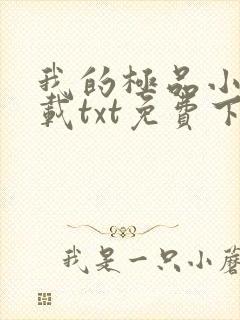 我的極品小
載txt免費下
我是一只小蘑